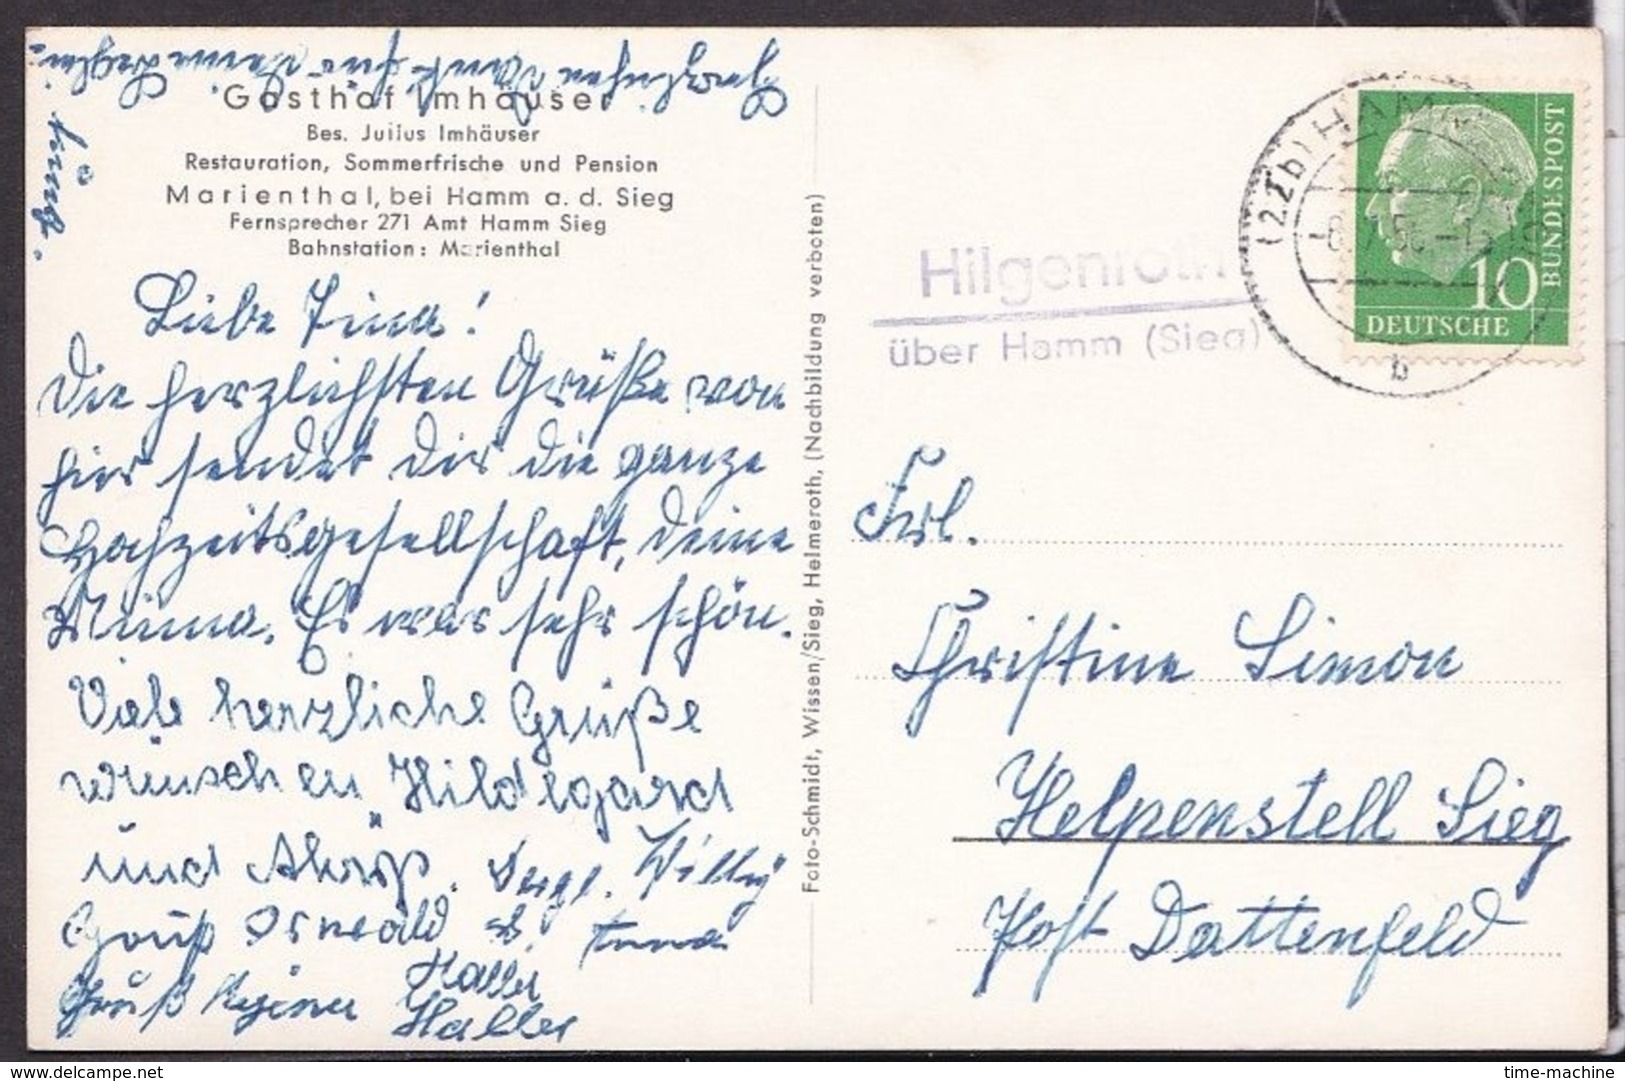 Herzlichen Dank für Deine
Gasthof Imhäuser
Bes. Julius Imhäuser
Restauration, Sommerfrische und Pension
Marienthal, bei Hamm a. d. Sieg
Fernsprecher 271 Amt Hamm Sieg
Bahnstation: Marienthal
Liebe Tina!
Die herzlichsten Grüße von
hier sendet Dir die ganze
Hochzeitsgesellschaft, Deine
Minna. Es war sehr schön.
Viele herzliche Grüße
wünschen Hildegard
und Willy
Gruß Oswald
Anna
Gruß
Haller
Haller
Foto-Schmidt, Wissen/Sieg, Helmeroth, (Nachbildung verboten)
Hilgenroth
über Hamm (Sieg)
(22b) HAMM
b
10
DEUTSCHE
BUNDESPOST
Frl.
Christine Simon
Helpenstell Sieg
Post Dattenfeld
time-machine
www.delcampe.net